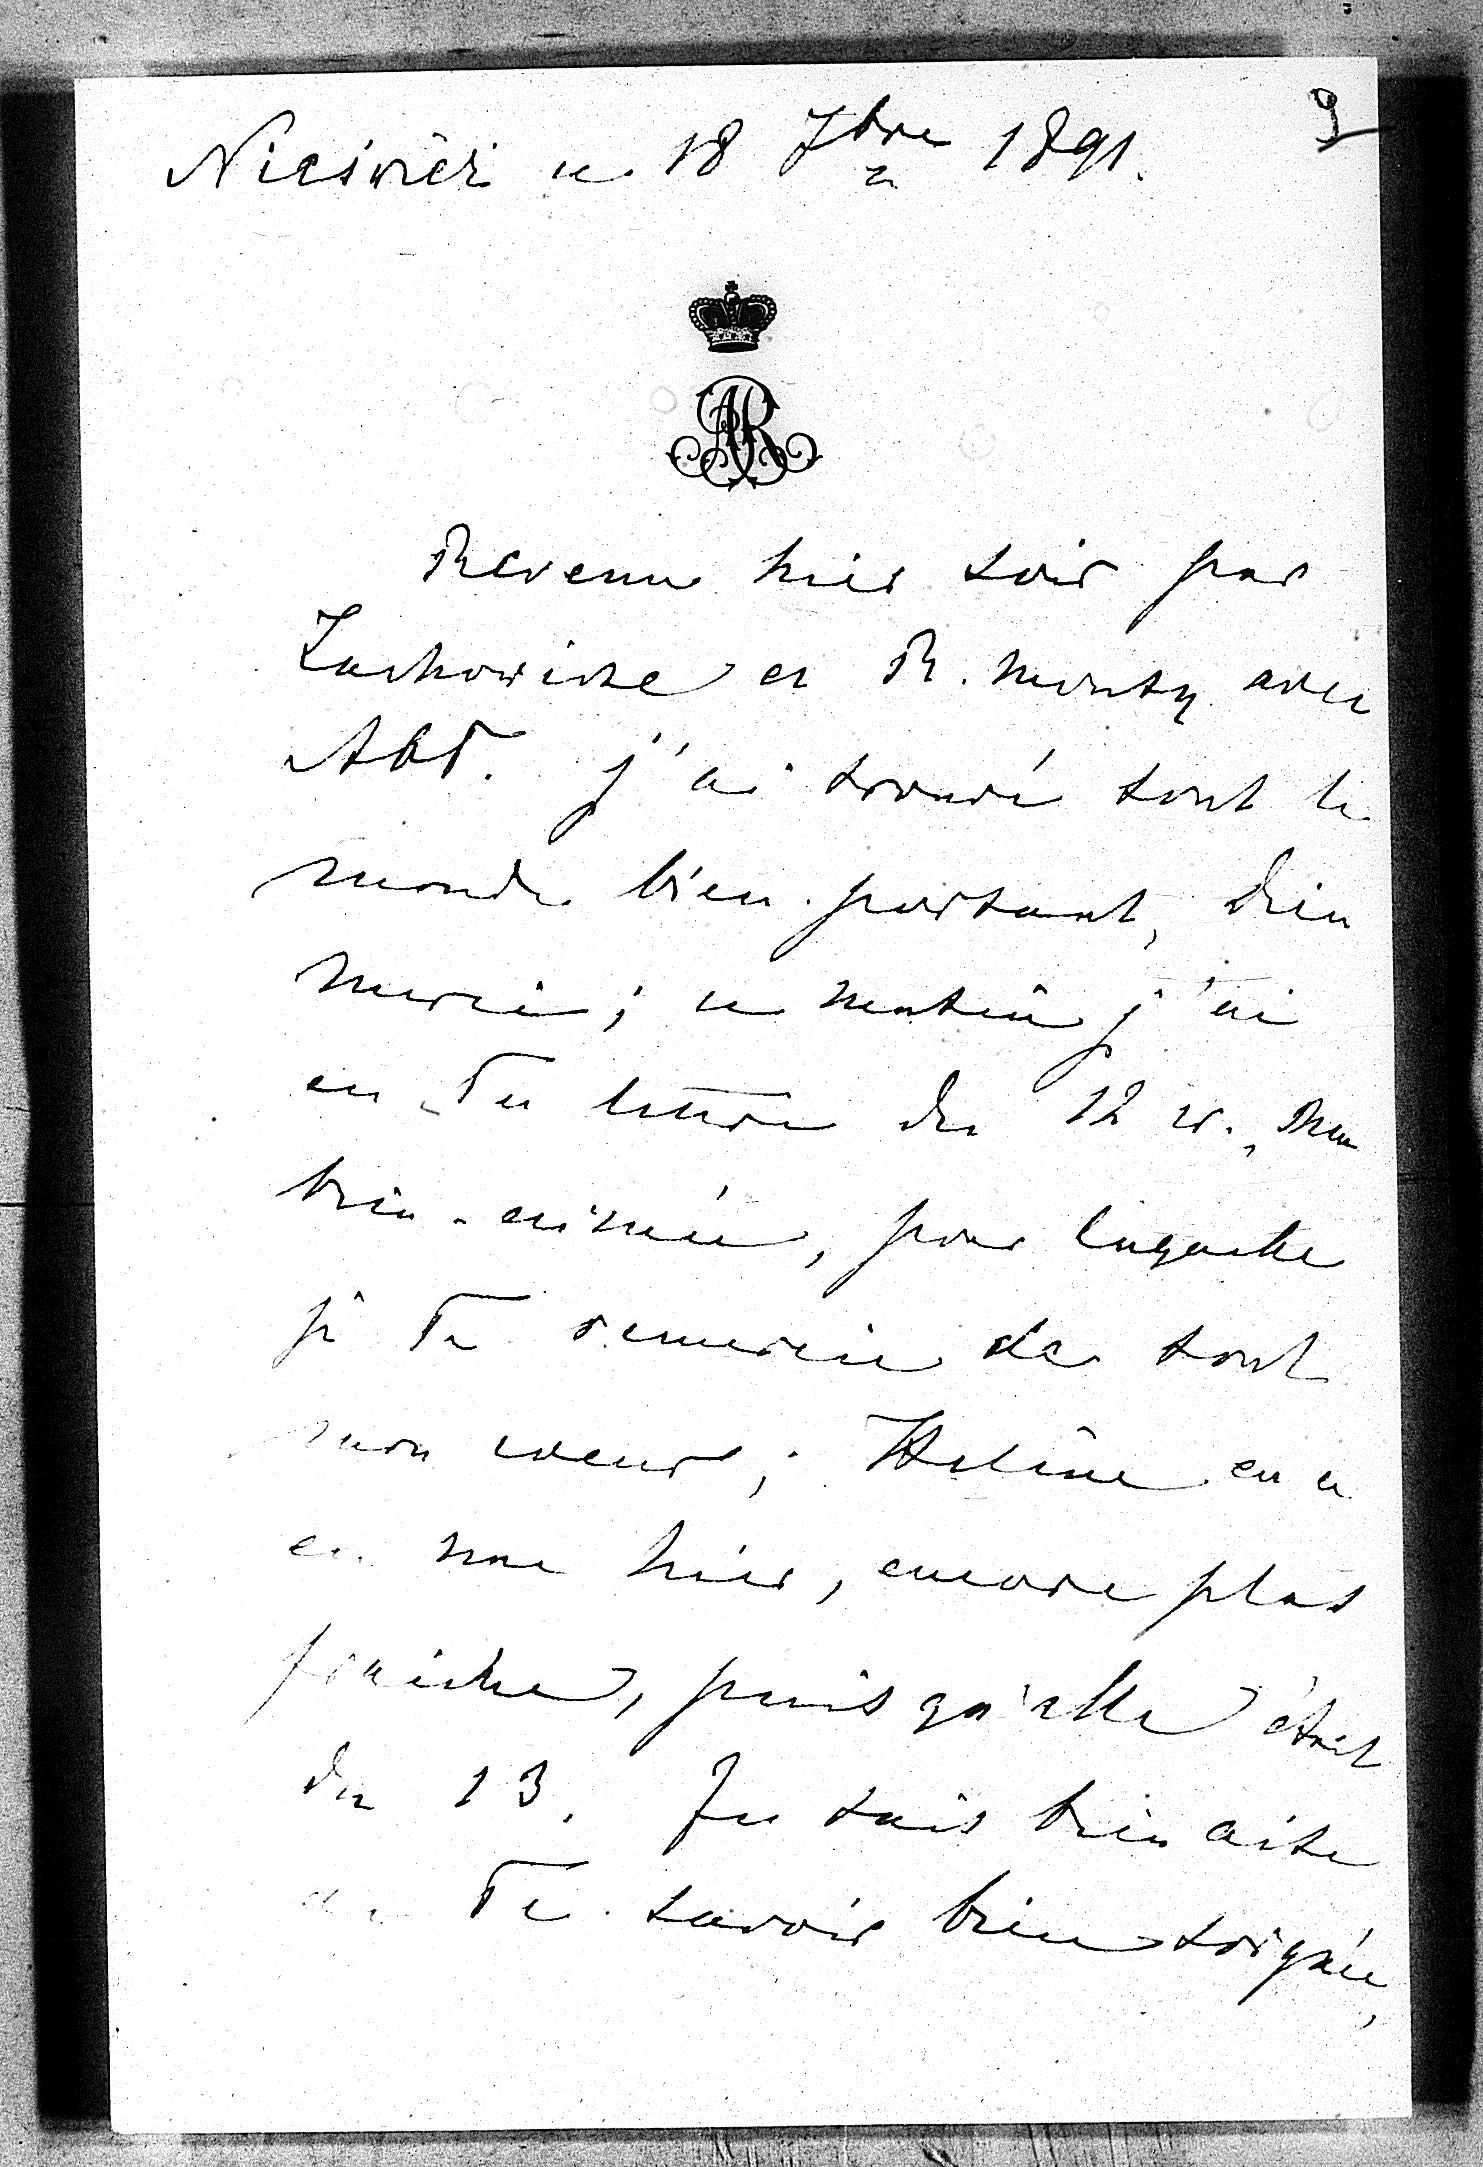 Nieśwież ce 18 7bre 1891.
9
AR
Revenu hier soir par
Lachowicze et R. monty avec
Abt. j'ai trouvé tout le
monde bien portant, Dieu
merci; ce matin j'ai
eu Ta lettre du 12 cr., Ma
bien-aimée, pour laquelle
je Te remercie de tout
mon coeur; Helène en a
eu une hier, encore plus
fraiche, puis qu'elle était
du 13. Je suis bien aise
de Te savoir bien soignée,